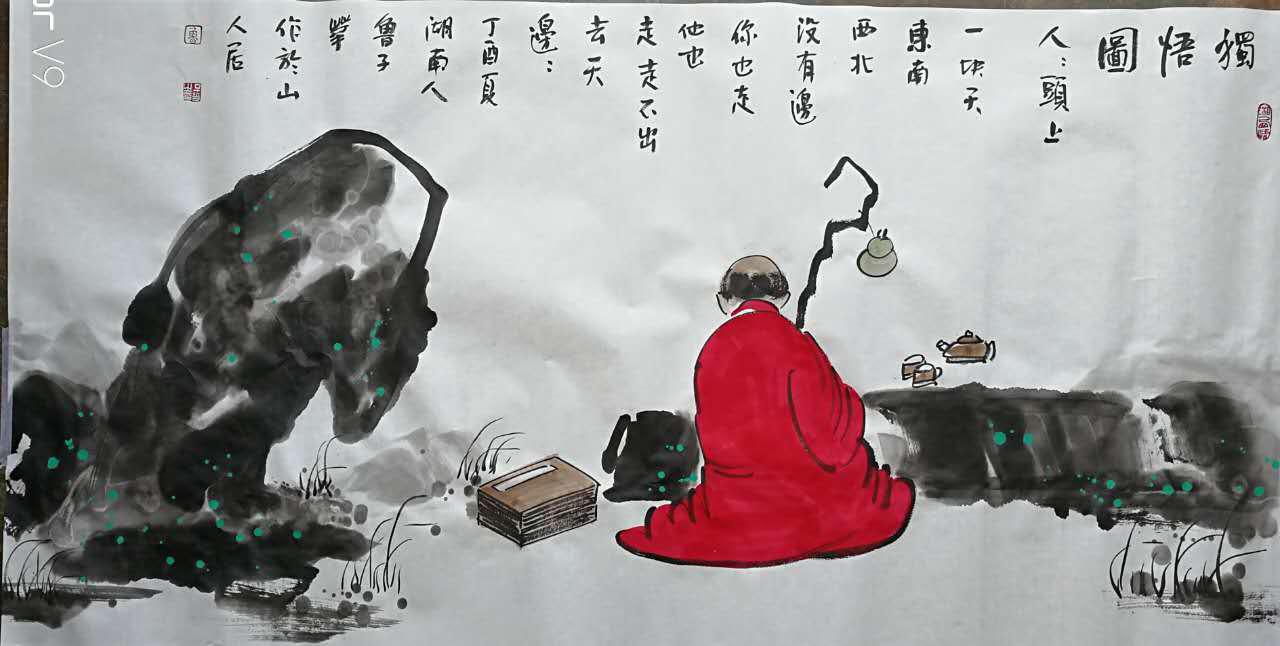 獨
悟
圖
人：頭上
一块天
東南
西北
没有邊
你也走
他也
走走不出
去天
邊：
丁酉夏
湖南人
魯子
作於山
人居
or V9